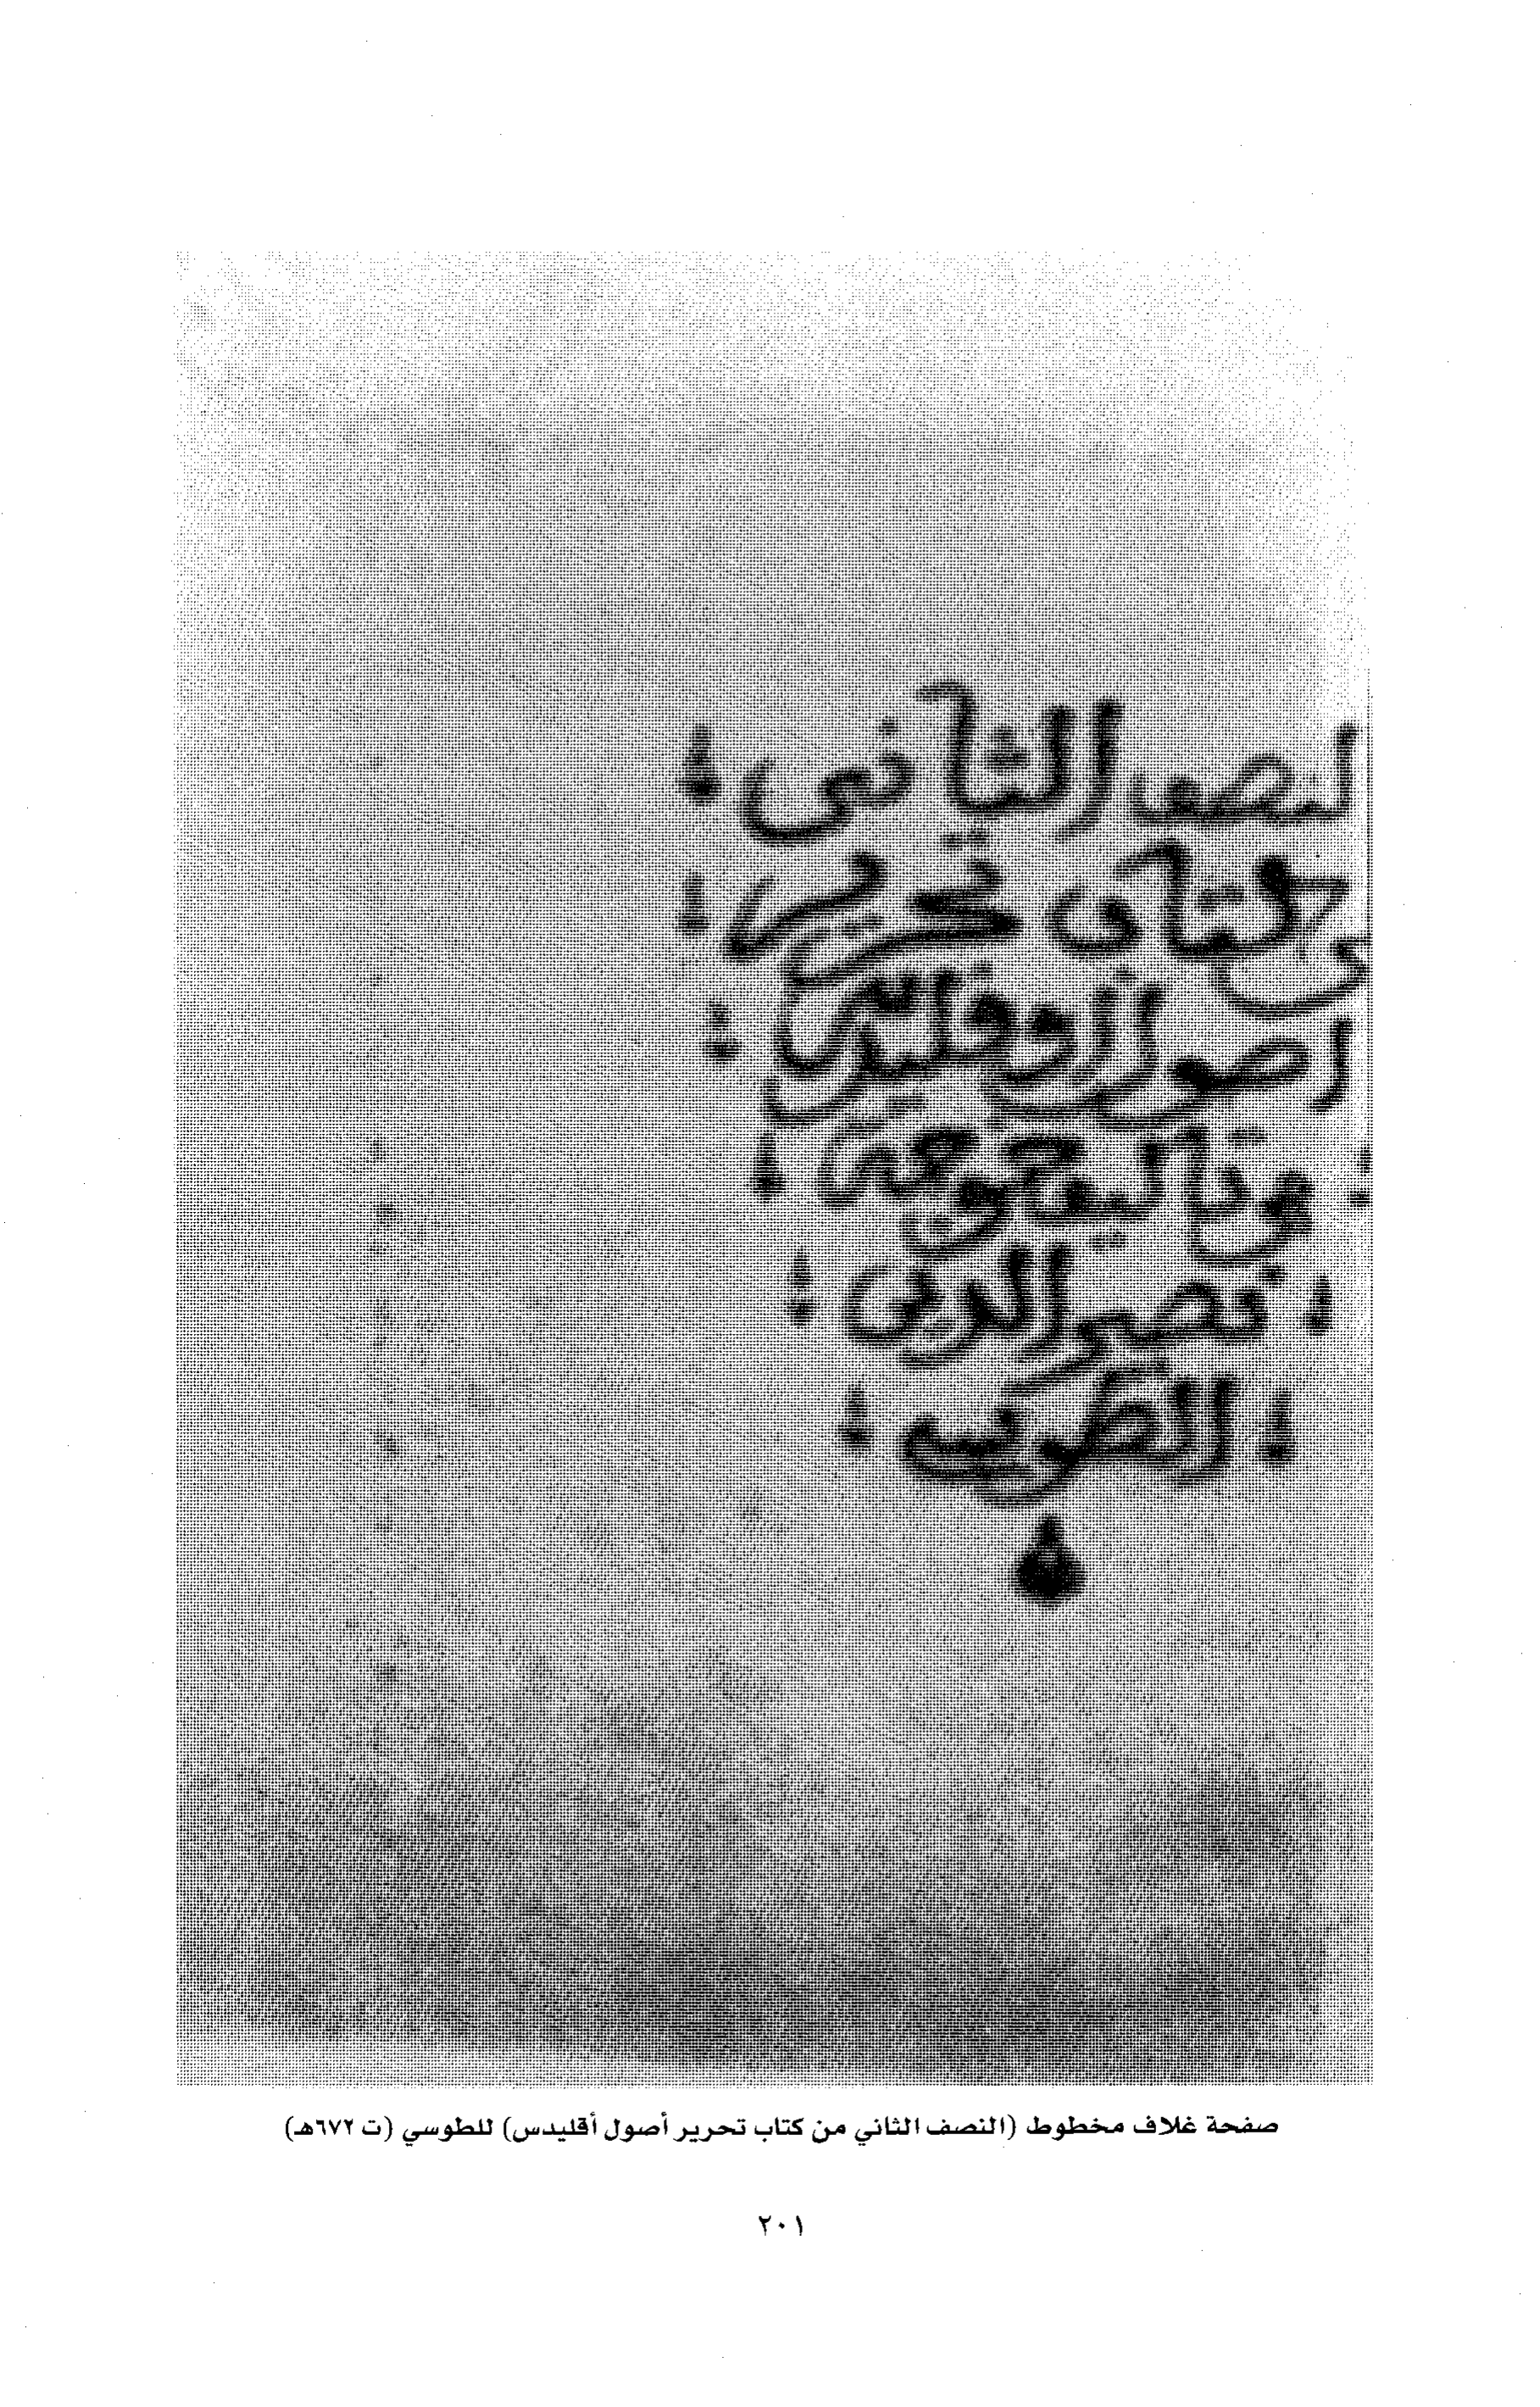 لنصف الثانى
كتاب تحرير
اصول اوقليدس
نصير الدين
الطوسي
صفحة غلاف مخطوط (النصف الثاني من كتاب تحرير أصول أقليدس) للطوسي (ت ٦٧٢هـ)
٢٠١